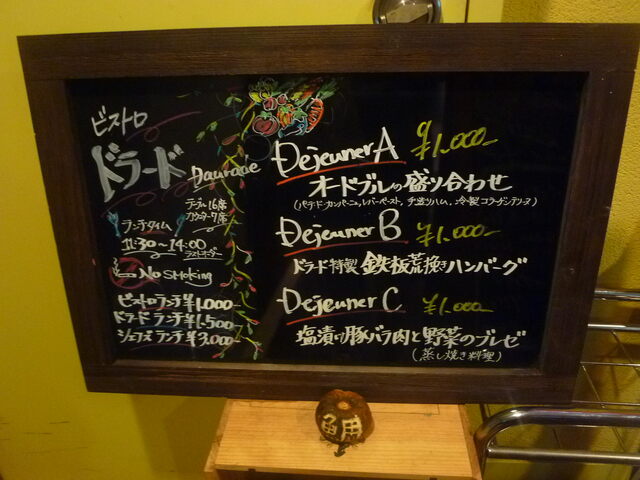 ビストロ
ドラード
Daurade
テーブル16席
カウンター7席
ランチタイム
11:30~14:00
ラストオーダー
No SMOKING
ビストロランチ¥1.000-
ドラードランチ¥1.500-
シェフズランチ¥3.000-
Dejeuner A ¥1.000-
オードブルの盛り合わせ
(パテ・ド・カンパーニュ,レバーペースト,手造りハム,冷製コラーゲンテリーヌ)
Dejeuner B ¥1.000-
ドラード特製 鉄板荒挽きハンバーグ
Dejeuner C ¥1.000-
塩漬け豚バラ肉と野菜のブレゼ
(蒸し焼き料理)